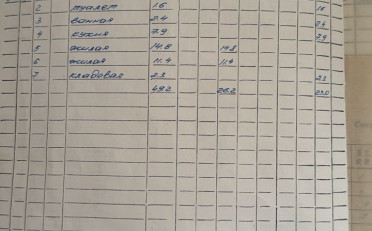 2 туалет 1.6 1.6
3 ванная 2.4 2.4
4 кухня 7.9 7.9
5 жилая 14.8 14.8
6 жилая 11.4 11.4
7 кладовая 2.3 2.3
49.2 26.2 23.0